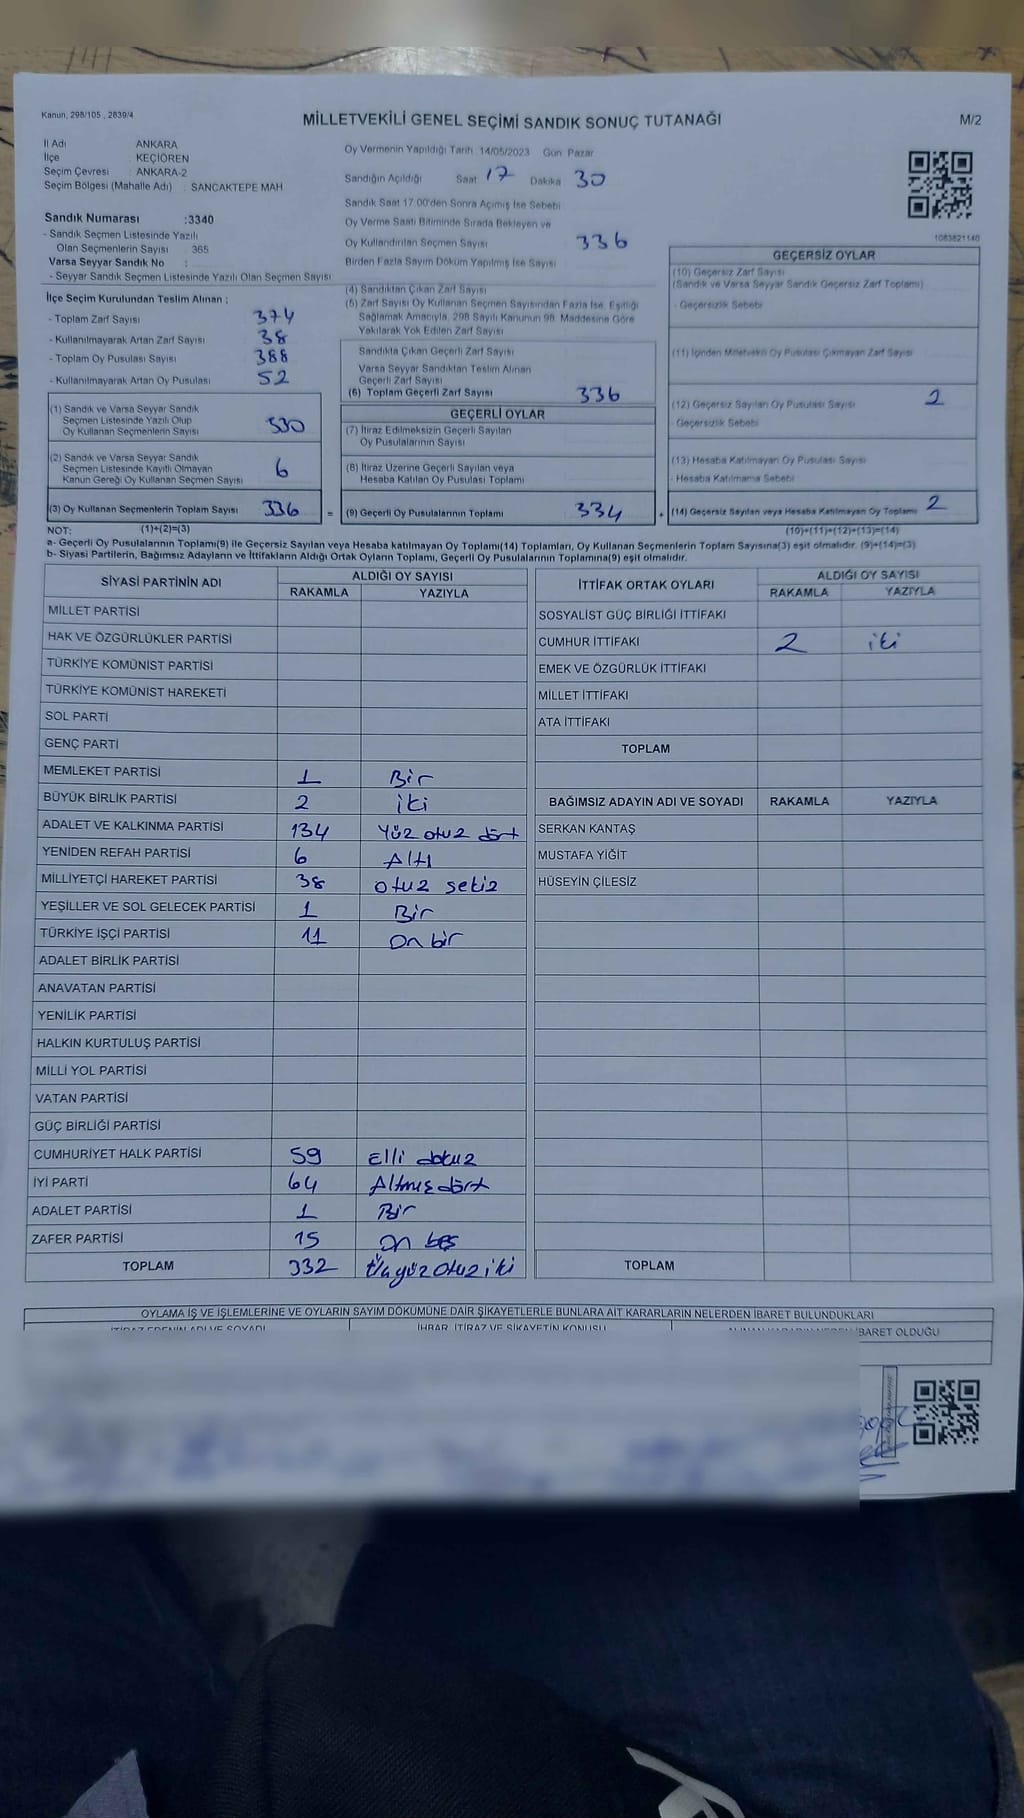 Kanun, 298/105 , 2839/4
MİLLETVEKİLİ GENEL SEÇİMİ SANDIK SONUÇ TUTANAĞI
M/2
İl Adı ANKARA
İlçe KEÇİÖREN
Seçim Çevresi : ANKARA-2
Seçim Bölgesi (Mahalle Adı) : SANCAKTEPE MAH
Sandık Numarası :3340
- Sandık Seçmen Listesinde Yazılı
Olan Seçmenlerin Sayısı : 365
Varsa Seyyar Sandık No :
- Seyyar Sandık Seçmen Listesinde Yazılı Olan Seçmen Sayısı
İlçe Seçim Kurulundan Teslim Alınan ;
- Toplam Zarf Sayısı 374
- Kullanılmayarak Artan Zarf Sayısı 38
- Toplam Oy Pusulası Sayısı 388
- Kullanılmayarak Artan Oy Pusulası 52
(1) Sandık ve Varsa Seyyar Sandık
Seçmen Listesinde Yazılı Olup
Oy Kullanan Seçmenlerin Sayısı 330
(2) Sandık ve Varsa Seyyar Sandık
Seçmen Listesinde Kayıtlı Olmayan
Kanun Gereği Oy Kullanan Seçmen Sayısı 6
(3) Oy Kullanan Seçmenlerin Toplam Sayısı 336 =
Oy Vermenin Yapıldığı Tarih 14/05/2023 Gün Pazar
Sandığın Açıldığı Saat 17 Dakika 30
Sandık Saat 17:00'den Sonra Açımış İse Sebebi
Oy Verme Saati Bitiminde Sırada Bekleyen ve
Oy Kullandırılan Seçmen Sayısı 336
Birden Fazla Sayım Döküm Yapılmış İse Sayısı
(4) Sandıktan Çıkan Zarf Sayısı
(5) Zarf Sayısı Oy Kullanan Seçmen Sayısından Fazla İse, Eşitliği
Sağlamak Amacıyla, 298 Sayılı Kanunun 98. Maddesine Göre
Yakılarak Yok Edilen Zarf Sayısı
Sandıkta Çıkan Geçerli Zarf Sayısı
Varsa Seyyar Sandıktan Teslim Alınan
Geçerli Zarf Sayısı
(6) Toplam Geçerli Zarf Sayısı 336
GEÇERLİ OYLAR
(7) İtiraz Edilmeksizin Geçerli Sayılan
Oy Pusulalarının Sayısı
(8) İtiraz Üzerine Geçerli Sayılan veya
Hesaba Katılan Oy Pusulası Toplamı
(9) Geçerli Oy Pusulalarının Toplamı 334 +
1083821140
GEÇERSİZ OYLAR
(10) Geçersiz Zarf Sayısı
(Sandık ve Varsa Seyyar Sandık Geçersiz Zarf Toplamı)
- Geçersizlik Sebebi
(11) İçinden Milletvekili Oy Pusulası Çıkmayan Zarf Sayısı
(12) Geçersiz Sayılan Oy Pusulası Sayısı 2
- Geçersizlik Sebebi
(13) Hesaba Katılmayan Oy Pusulası Sayısı
- Hesaba Katılmama Sebebi
(14) Geçersiz Sayılan veya Hesaba Katılmayan Oy Toplamı 2
NOT: (1)+(2)=(3) (10)+(11)+(12)+(13)=(14)
a- Geçerli Oy Pusulasının Toplamı(9) ile Geçersiz Sayılan veya Hesaba katılmayan Oy Toplamı(14) Toplamları, Oy Kullanan Seçmenlerin Toplam Sayısına(3) eşit olmalıdır. (9)+(14)=(3)
b- Siyasi Partilerin, Bağımsız Adayların ve İttifakların Aldığı Ortak Oyların Toplamı, Geçerli Oy Pusulasının Toplamına(9) eşit olmalıdır.
SİYASİ PARTİNİN ADI ALDIĞI OY SAYISI
RAKAMLA YAZIYLA
MİLLET PARTİSİ
HAK VE ÖZGÜRLÜKLER PARTİSİ
TÜRKİYE KOMÜNİST PARTİSİ
TÜRKİYE KOMÜNİST HAREKETİ
SOL PARTİ
GENÇ PARTİ
MEMLEKET PARTİSİ 1 Bir
BÜYÜK BİRLİK PARTİSİ 2 iki
ADALET VE KALKINMA PARTİSİ 134 Yüz otuz dört
YENİDEN REFAH PARTİSİ 6 Altı
MİLLİYETÇİ HAREKET PARTİSİ 38 otuz sekiz
YEŞİLLER VE SOL GELECEK PARTİSİ 1 Bir
TÜRKİYE İŞÇİ PARTİSİ 11 On bir
ADALET BİRLİK PARTİSİ
ANAVATAN PARTİSİ
YENİLİK PARTİSİ
HALKIN KURTULUŞ PARTİSİ
MİLLİ YOL PARTİSİ
VATAN PARTİSİ
GÜÇ BİRLİĞİ PARTİSİ
CUMHURİYET HALK PARTİSİ 59 Elli dokuz
İYİ PARTİ 64 Altmış dört
ADALET PARTİSİ 1 Bir
ZAFER PARTİSİ 15 On beş
TOPLAM 332 Üçyüz otuz iki
İTTİFAK ORTAK OYLARI ALDIĞI OY SAYISI
RAKAMLA YAZIYLA
SOSYALİST GÜÇ BİRLİĞİ İTTİFAKI
CUMHUR İTTİFAKI 2 iki
EMEK VE ÖZGÜRLÜK İTTİFAKI
MİLLET İTTİFAKI
ATA İTTİFAKI
TOPLAM
BAĞIMSIZ ADAYIN ADI VE SOYADI RAKAMLA YAZIYLA
SERKAN KANTAŞ
MUSTAFA YİĞİT
HÜSEYİN ÇİLESİZ
TOPLAM
OYLAMA İŞ VE İŞLEMLERİNE VE OYLARIN SAYIM DÖKÜMÜNE DAİR ŞİKAYETLERLE BUNLARA AİT KARARLARIN NELERDEN İBARET BULUNDUKLARI
İTİRAZ EDENİN ADI VE SOYADI İHBAR, İTİRAZ VE ŞİKAYETİN KONUSU İBARET OLDUĞU